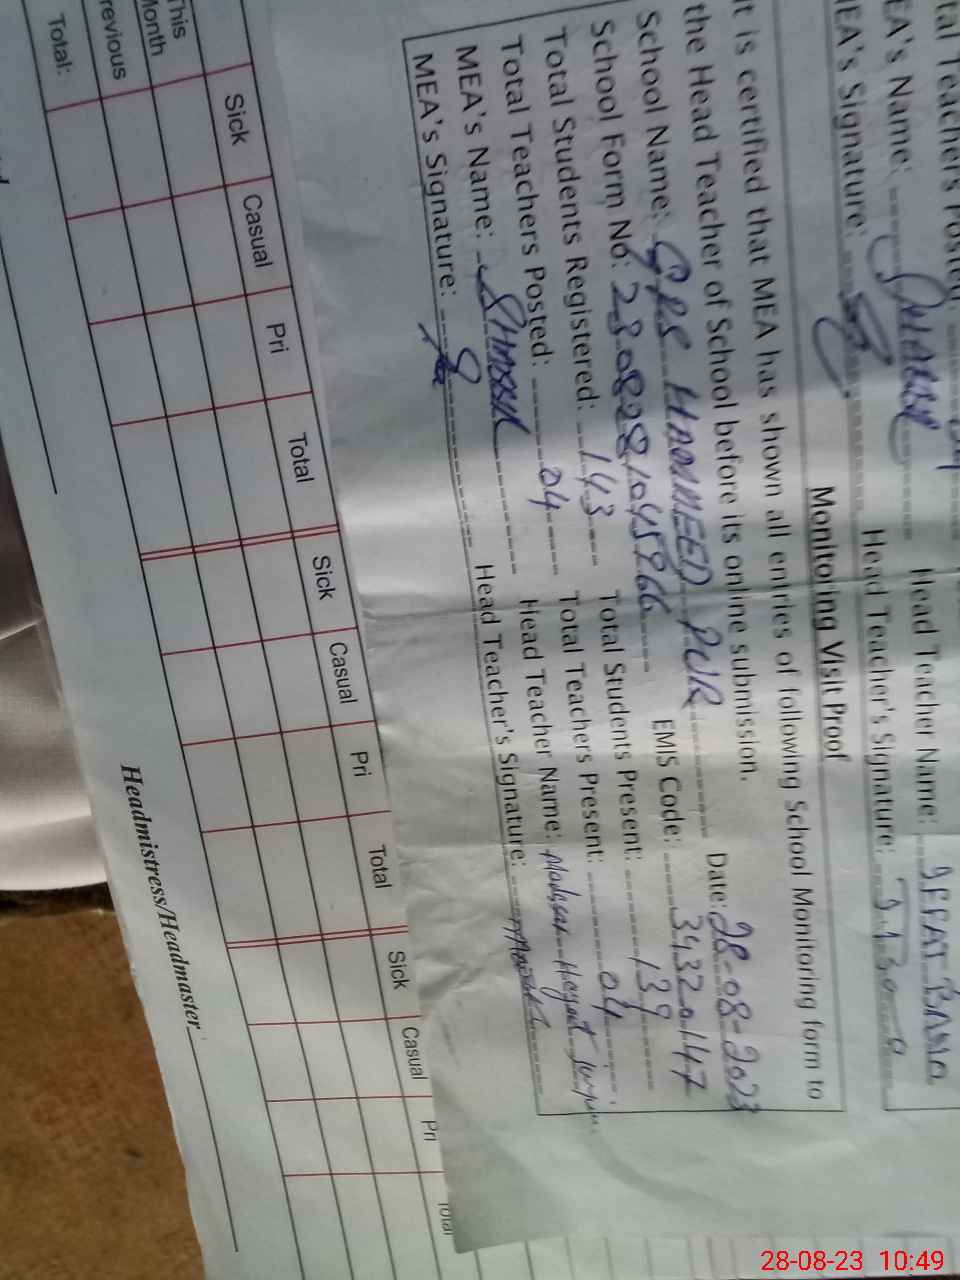 tal Teachers Posted:
EA's Name: Head Teacher Name: IFFAT BANO
MEA's Signature: Head Teacher's Signature:
Monitoring Visit Proof
It is certified that MEA has shown all entries of following School Monitoring form to
the Head Teacher of School before its online submission.
School Name: GPS HAMEED PUR Date: 28-08-2023
School Form No: EMIS Code: 34320147
Total Students Registered: 143 Total Students Present: 139
Total Teachers Posted: 04 Total Teachers Present: 04
MEA's Name: Head Teacher Name:
MEA's Signature: Head Teacher's Signature:
Sick Casual Pri Total Sick Casual Pri Total Sick Casual Pri Total
This Month
revious
Total:
Headmistress/Headmaster
28-08-23 10:49